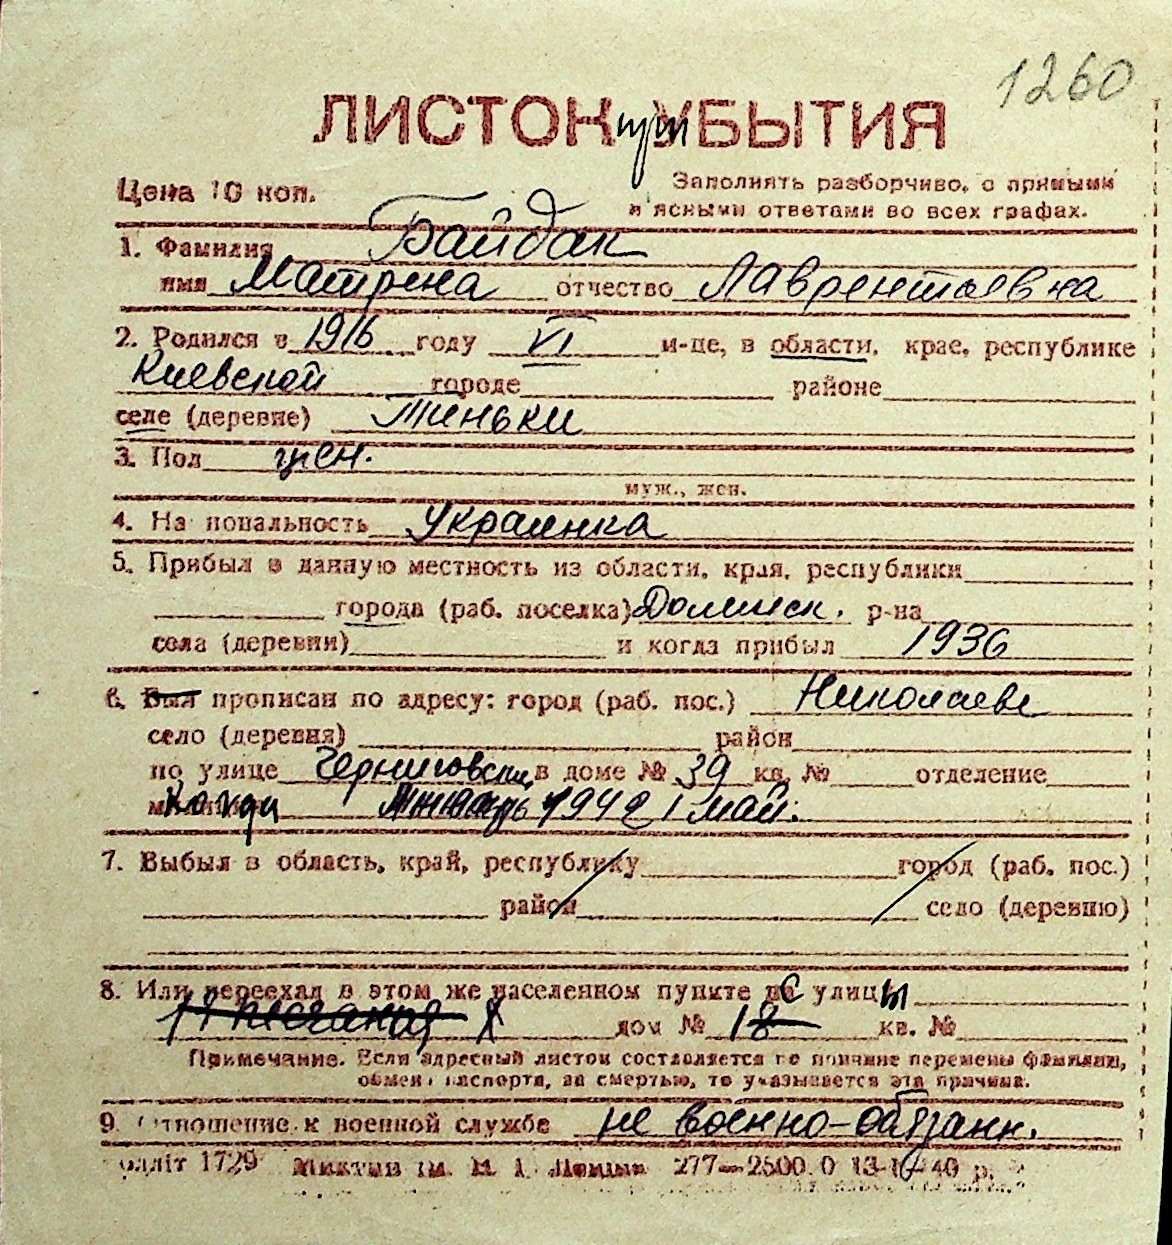 1260
ЛИСТОК при УБЫТИЯ
Цена 10 коп.
Заполнять разборчиво, с прямыми
и ясными ответами во всех графах.
1. Фамилия Байдак
имя Матрена отчество Лаврентьевна
2. Родился в 1916 году VI м-це, в области, крае, республике
Киевской городе районе
селе (деревне) Теньки
3. Пол жен.
муж., жен.
4. Национальность Украинка
5. Прибыл в данную местность из области, края, республики
города (раб. поселка) Долинск. р-на
села (деревни) и когда прибыл 1936
6. Был прописан по адресу: город (раб. пос.) Николаеве
село (деревня) район
по улице Черниговская в доме № 39 кв. № отделение
Когда 1942 1 май.
7. Выбыл в область, край, республику город (раб. пос.)
район село (деревню)
8. Или переехал в этом же населенном пункте с улицы
11 Песчаная дом № 18 кв. №
Примечание. Если адресный листок составляется по причине перемены фамилии,
обмена паспорта, за смертью, то указывается эта причина.
9. Отношение к военной службе не военно-обязанн.
1729 277—2500.0 40 р.